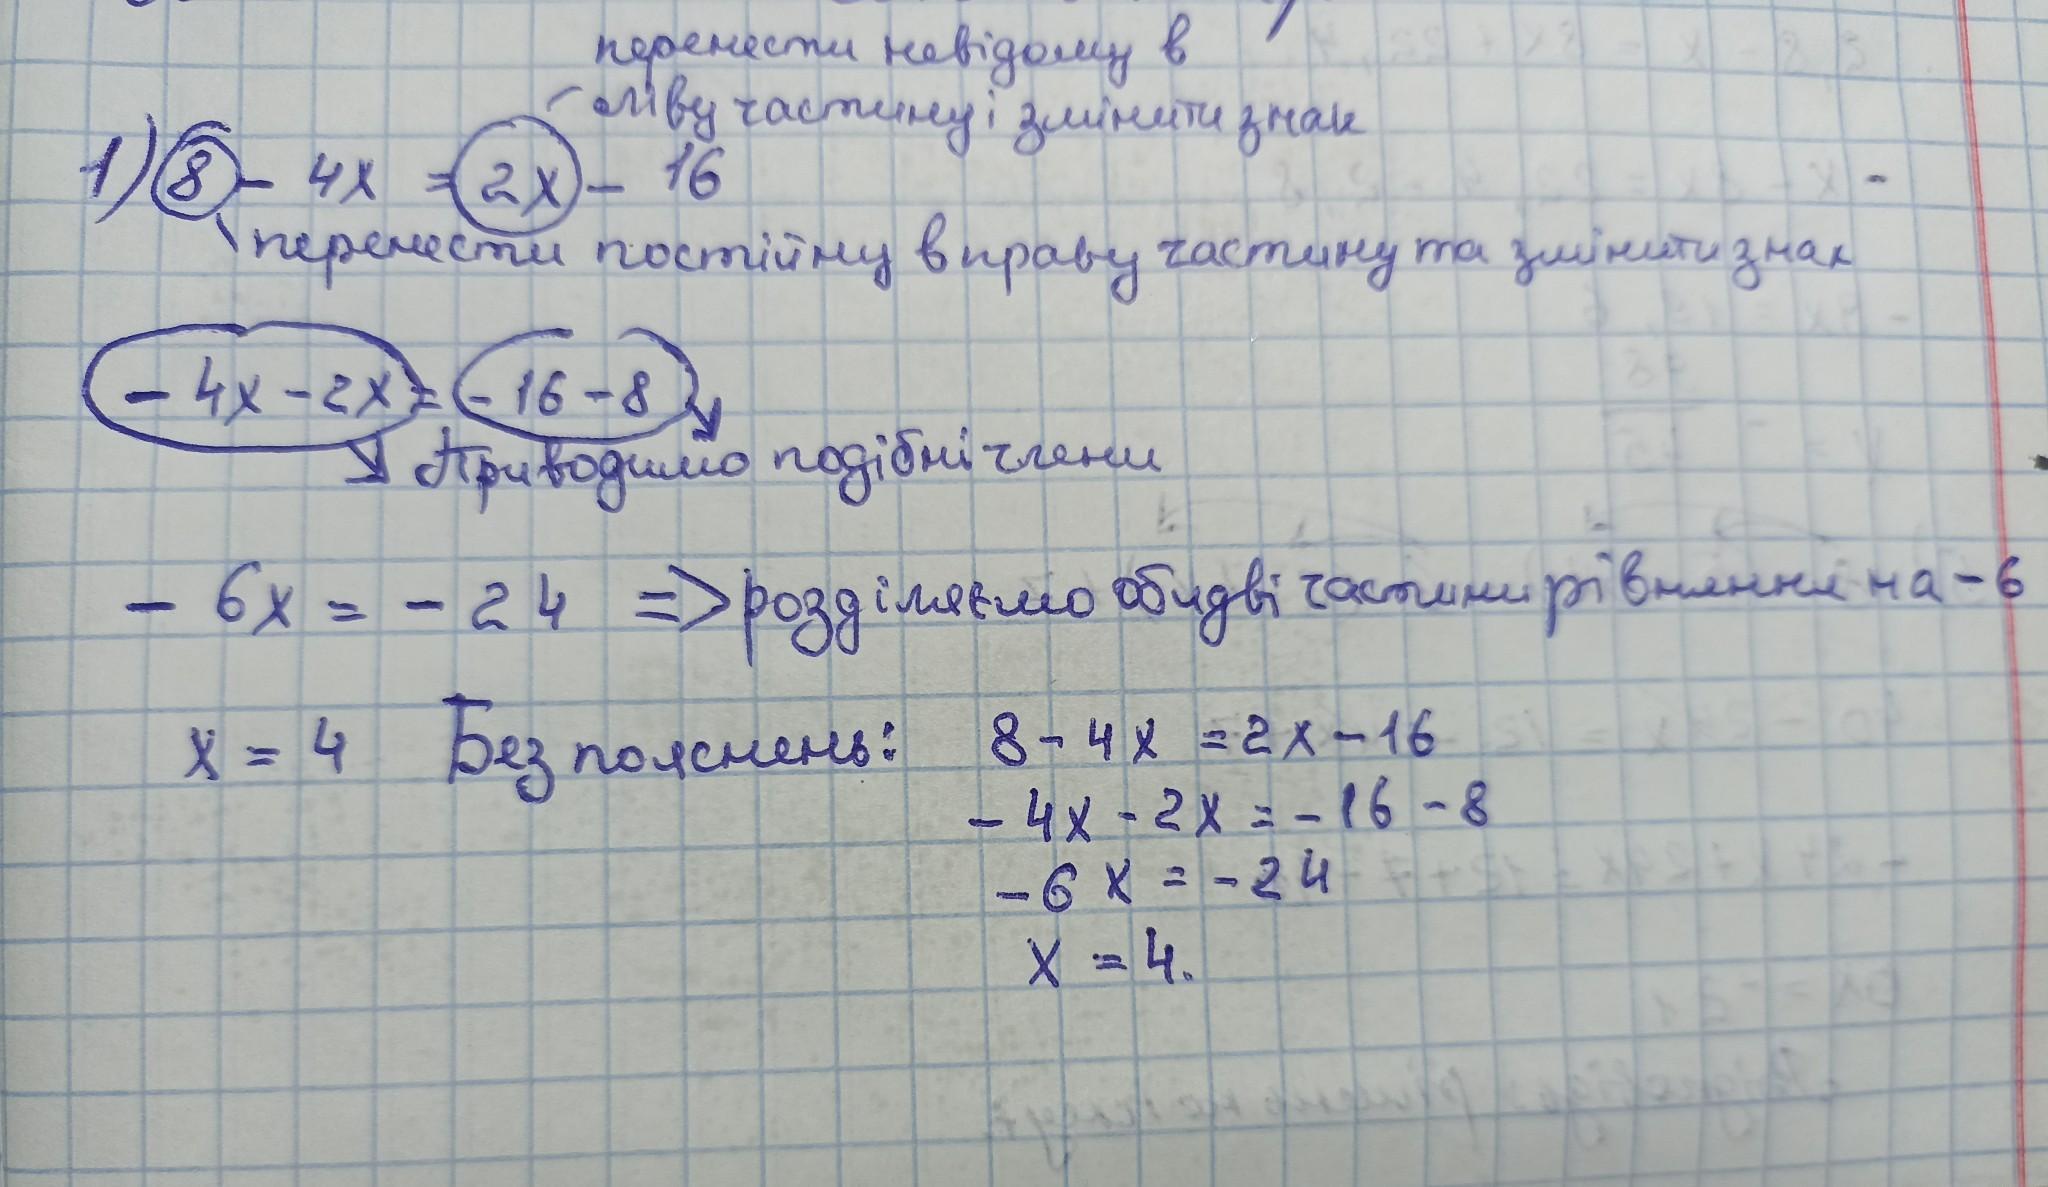 перенести невідому в
ліву частину і змінити знак
1) 8 - 4x = 2x - 16
перенести постійну в праву частину та змінити знак
- 4x - 2x = - 16 - 8
Приводимо подібні члени
- 6x = - 24 => розділяємо обидві частини рівняння на - 6
x = 4 Без пояснень: 8 - 4x = 2x - 16
- 4x - 2x = - 16 - 8
- 6x = - 24
x = 4.